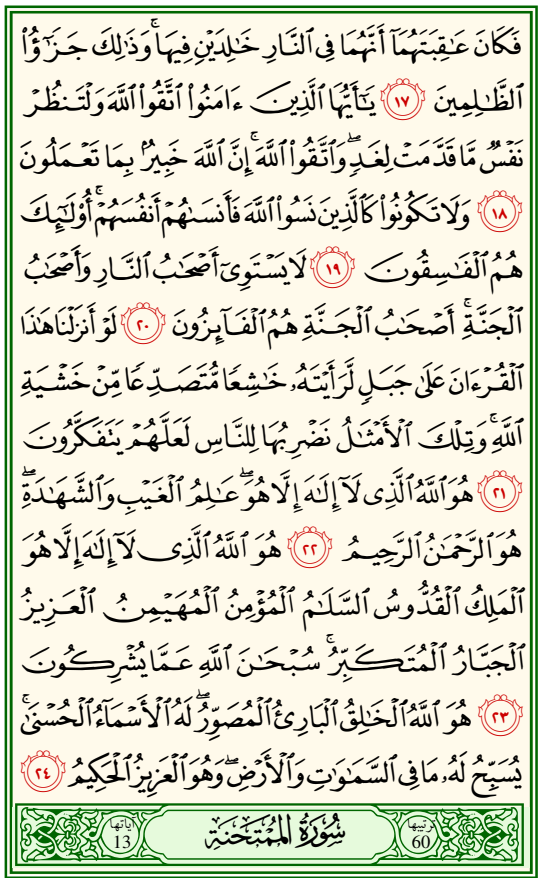 فَكَانَ عَٰقِبَتَهُمَآ أَنَّهُمَا فِي ٱلنَّارِ خَٰلِدَيۡنِ فِيهَاۚ وَذَٰلِكَ جَزَٰٓؤُاْ
ٱلظَّٰلِمِينَ ١٧ يَٰٓأَيُّهَا ٱلَّذِينَ ءَامَنُواْ ٱتَّقُواْ ٱللَّهَ وَلۡتَنظُرۡ
نَفۡسٞ مَّا قَدَّمَتۡ لِغَدٖۖ وَٱتَّقُواْ ٱللَّهَۚ إِنَّ ٱللَّهَ خَبِيرُۢ بِمَا تَعۡمَلُونَ
١٨ وَلَا تَكُونُواْ كَٱلَّذِينَ نَسُواْ ٱللَّهَ فَأَنسَىٰهُمۡ أَنفُسَهُمۡۚ أُوْلَٰٓئِكَ
هُمُ ٱلۡفَٰسِقُونَ ١٩ لَا يَسۡتَوِيٓ أَصۡحَٰبُ ٱلنَّارِ وَأَصۡحَٰبُ
ٱلۡجَنَّةِۚ أَصۡحَٰبُ ٱلۡجَنَّةِ هُمُ ٱلۡفَآئِزُونَ ٢٠ لَوۡ أَنزَلۡنَا هَٰذَا
ٱلۡقُرۡءَانَ عَلَىٰ جَبَلٖ لَّرَأَيۡتَهُۥ خَٰشِعٗا مُّتَصَدِّعٗا مِّنۡ خَشۡيَةِ
ٱللَّهِۚ وَتِلۡكَ ٱلۡأَمۡثَٰلُ نَضۡرِبُهَا لِلنَّاسِ لَعَلَّهُمۡ يَتَفَكَّرُونَ
٢١ هُوَ ٱللَّهُ ٱلَّذِي لَآ إِلَٰهَ إِلَّا هُوَۖ عَٰلِمُ ٱلۡغَيۡبِ وَٱلشَّهَٰدَةِۖ
هُوَ ٱلرَّحۡمَٰنُ ٱلرَّحِيمُ ٢٢ هُوَ ٱللَّهُ ٱلَّذِي لَآ إِلَٰهَ إِلَّا هُوَ
ٱلۡمَلِكُ ٱلۡقُدُّوسُ ٱلسَّلَٰمُ ٱلۡمُؤۡمِنُ ٱلۡمُهَيۡمِنُ ٱلۡعَزِيزُ
ٱلۡجَبَّارُ ٱلۡمُتَكَبِّرُۚ سُبۡحَٰنَ ٱللَّهِ عَمَّا يُشۡرِكُونَ
٢٣ هُوَ ٱللَّهُ ٱلۡخَٰلِقُ ٱلۡبَارِئُ ٱلۡمُصَوِّرُۖ لَهُ ٱلۡأَسۡمَآءُ ٱلۡحُسۡنَىٰۚ
يُسَبِّحُ لَهُۥ مَا فِي ٱلسَّمَٰوَٰتِ وَٱلۡأَرۡضِۖ وَهُوَ ٱلۡعَزِيزُ ٱلۡحَكِيمُ ٢٤
ترتيبها 60 سُورَةُ المُمْتَحنَةِ آياتها 13